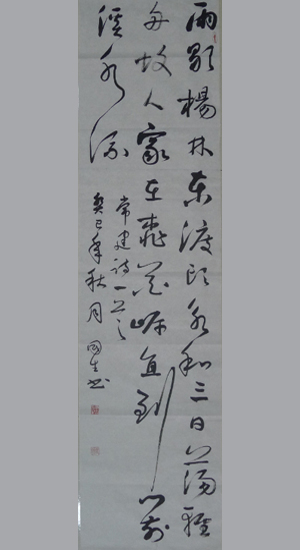 雨歇楊林東渡頭永和三日蕩輕
舟故人家在桃花岸直到門前
溪水流
常建詩一首
癸巳年秋月 國生書